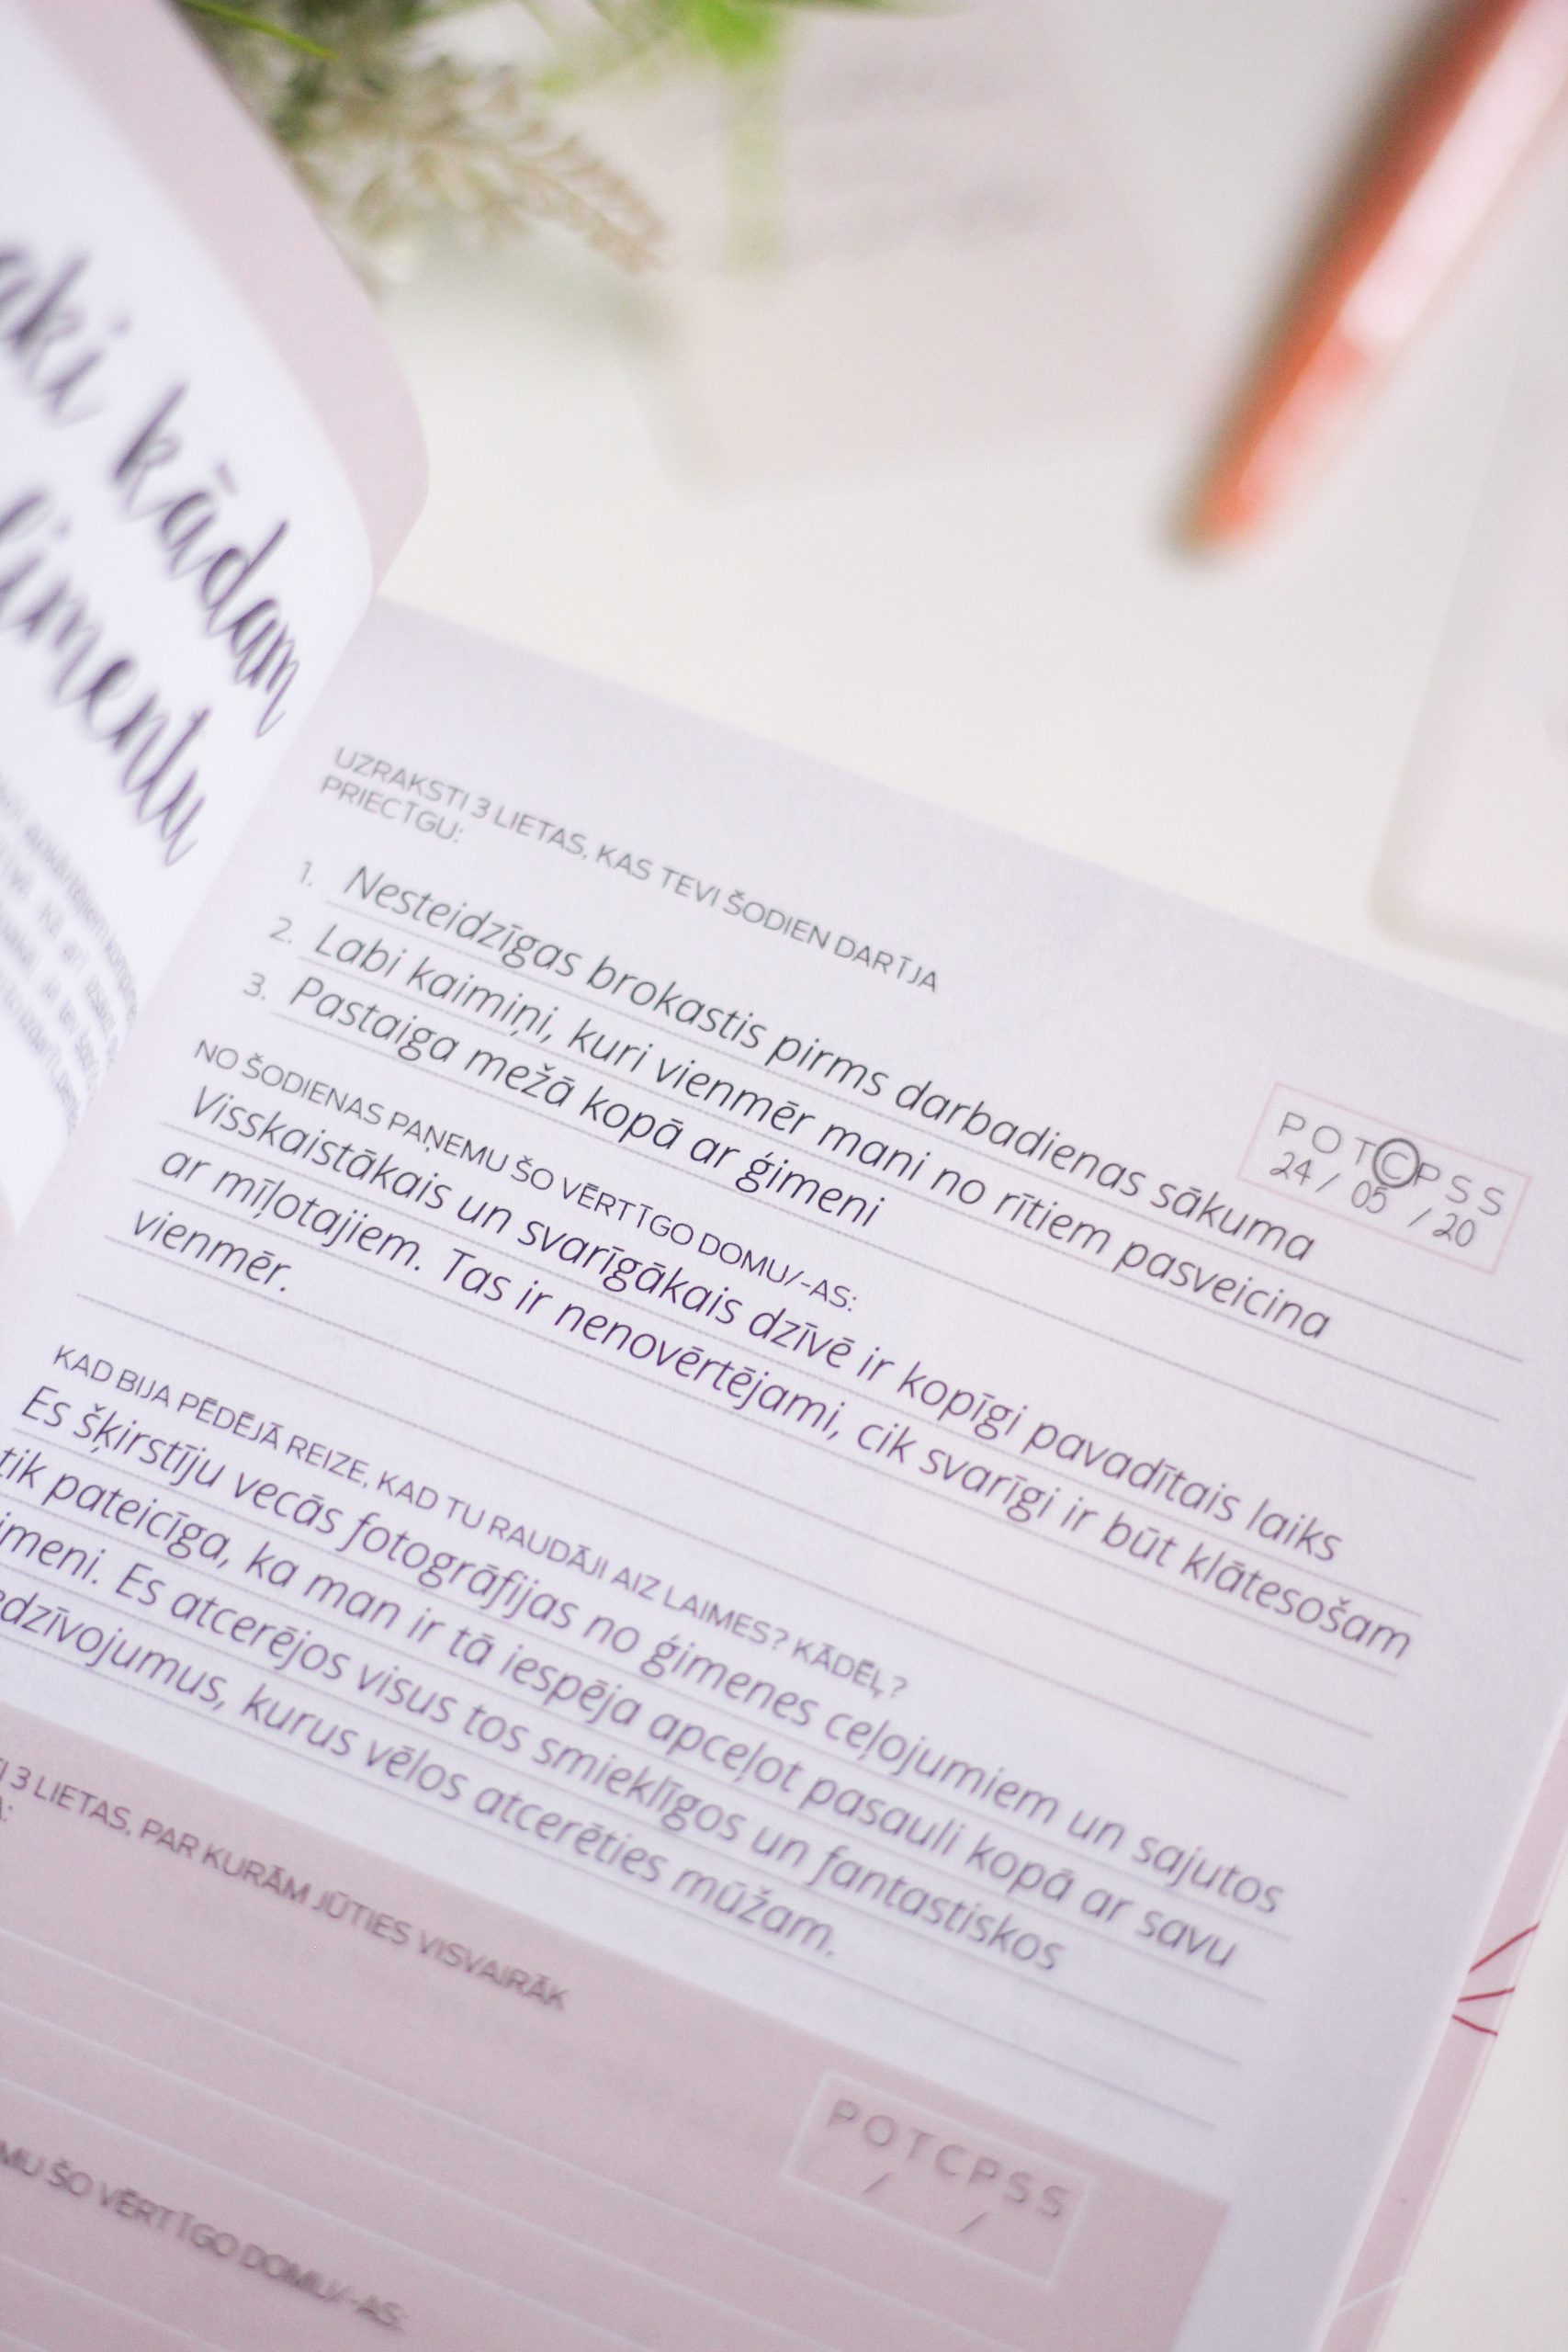 kādam
UZRAKSTI 3 LIETAS, KAS TEVI ŠODIEN DARĪJA
PRIECĪGU:
1. Nesteidzīgas brokastis pirms darbadienas sākuma
2. Labi kaimiņi, kuri vienmēr mani no rītiem pasveicina
3. Pastaiga mežā kopā ar ģimeni
P O T C P S S
24 / 05 / 20
NO ŠODIENAS PAŅEMU ŠO VĒRTĪGO DOMU/-AS:
Visskaistākais un svarīgākais dzīvē ir kopīgi pavadītais laiks
ar mīļotajiem. Tas ir nenovērtējami, cik svarīgi ir būt klātesošam
vienmēr.
KAD BIJA PĒDĒJĀ REIZE, KAD TU RAUDĀJI AIZ LAIMES? KĀDĒĻ?
Es šķirstīju vecās fotogrāfijas no ģimenes ceļojumiem un sajutos
tik pateicīga, ka man ir tā iespēja apceļot pasauli kopā ar savu
imeni. Es atcerējos visus tos smieklīgos un fantastiskos
edzīvojumus, kurus vēlos atcerēties mūžam.
3 LIETAS, PAR KURĀM JŪTIES VISVAIRĀK
P O T C P S S
/ /
MU ŠO VĒRTĪGO DOMU/-AS: